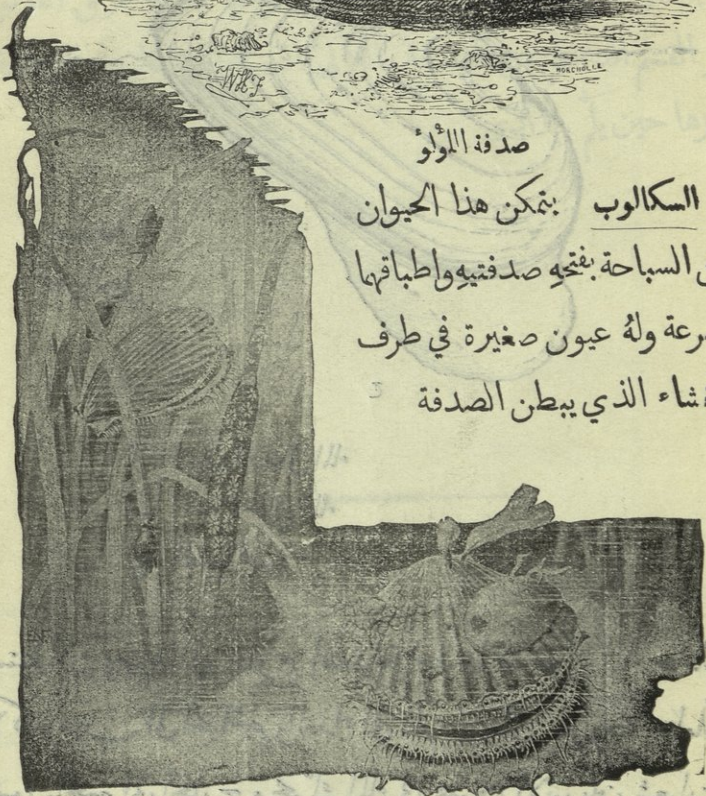 HORCHOLLE
صدفة اللؤلؤ
السكالوب يتمكن هذا الحيوان
السباحة بفتحهِ صدفتيهِ واطباقهما
ولهُ عيون صغيرة في طرف
الذي يبطن الصدفة